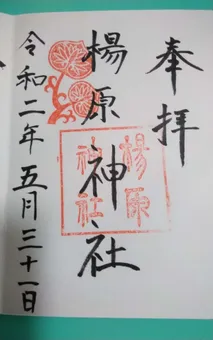 奉拝
楊原神社
楊原
神社
令和二年五月三十一日